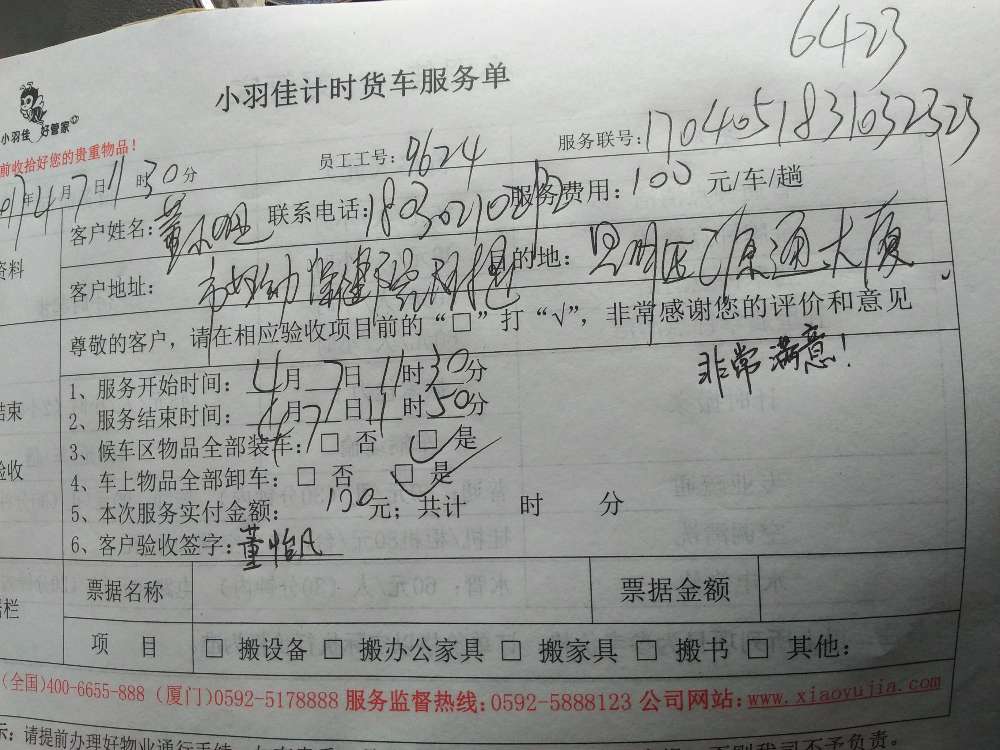 6423
小羽佳计时货车服务单
小羽佳 好管家
前收拾好您的贵重物品！
员工工号：9624
服务联号：1704051831032323
年4月7日11时30分
客户姓名：董 联系电话： 服务费用：100元/车/趟
资料
客户地址： 目的地：思明区 通大厦
尊敬的客户，请在相应验收项目前的“□”打“√”，非常感谢您的评价和意见
非常满意！
1、服务开始时间：4月7日11时30分
2、服务结束时间：4月7日11时50分
结束
3、候车区物品全部装车：□ 否 □ 是
验收
4、车上物品全部卸车：□ 否 □ 是
5、本次服务实付金额：100元；共计 时 分
6、客户验收签字：董怡凡
票据名称 票据金额
栏
项 目 □ 搬设备 □ 搬办公家具 □ 搬家具 □ 搬书 □ 其他：
(全国)400-6655-888 (厦门)0592-5178888 服务监督热线:0592-5888123 公司网站:www.xiaoyujia.com
示：请提前办理好物业通行手续